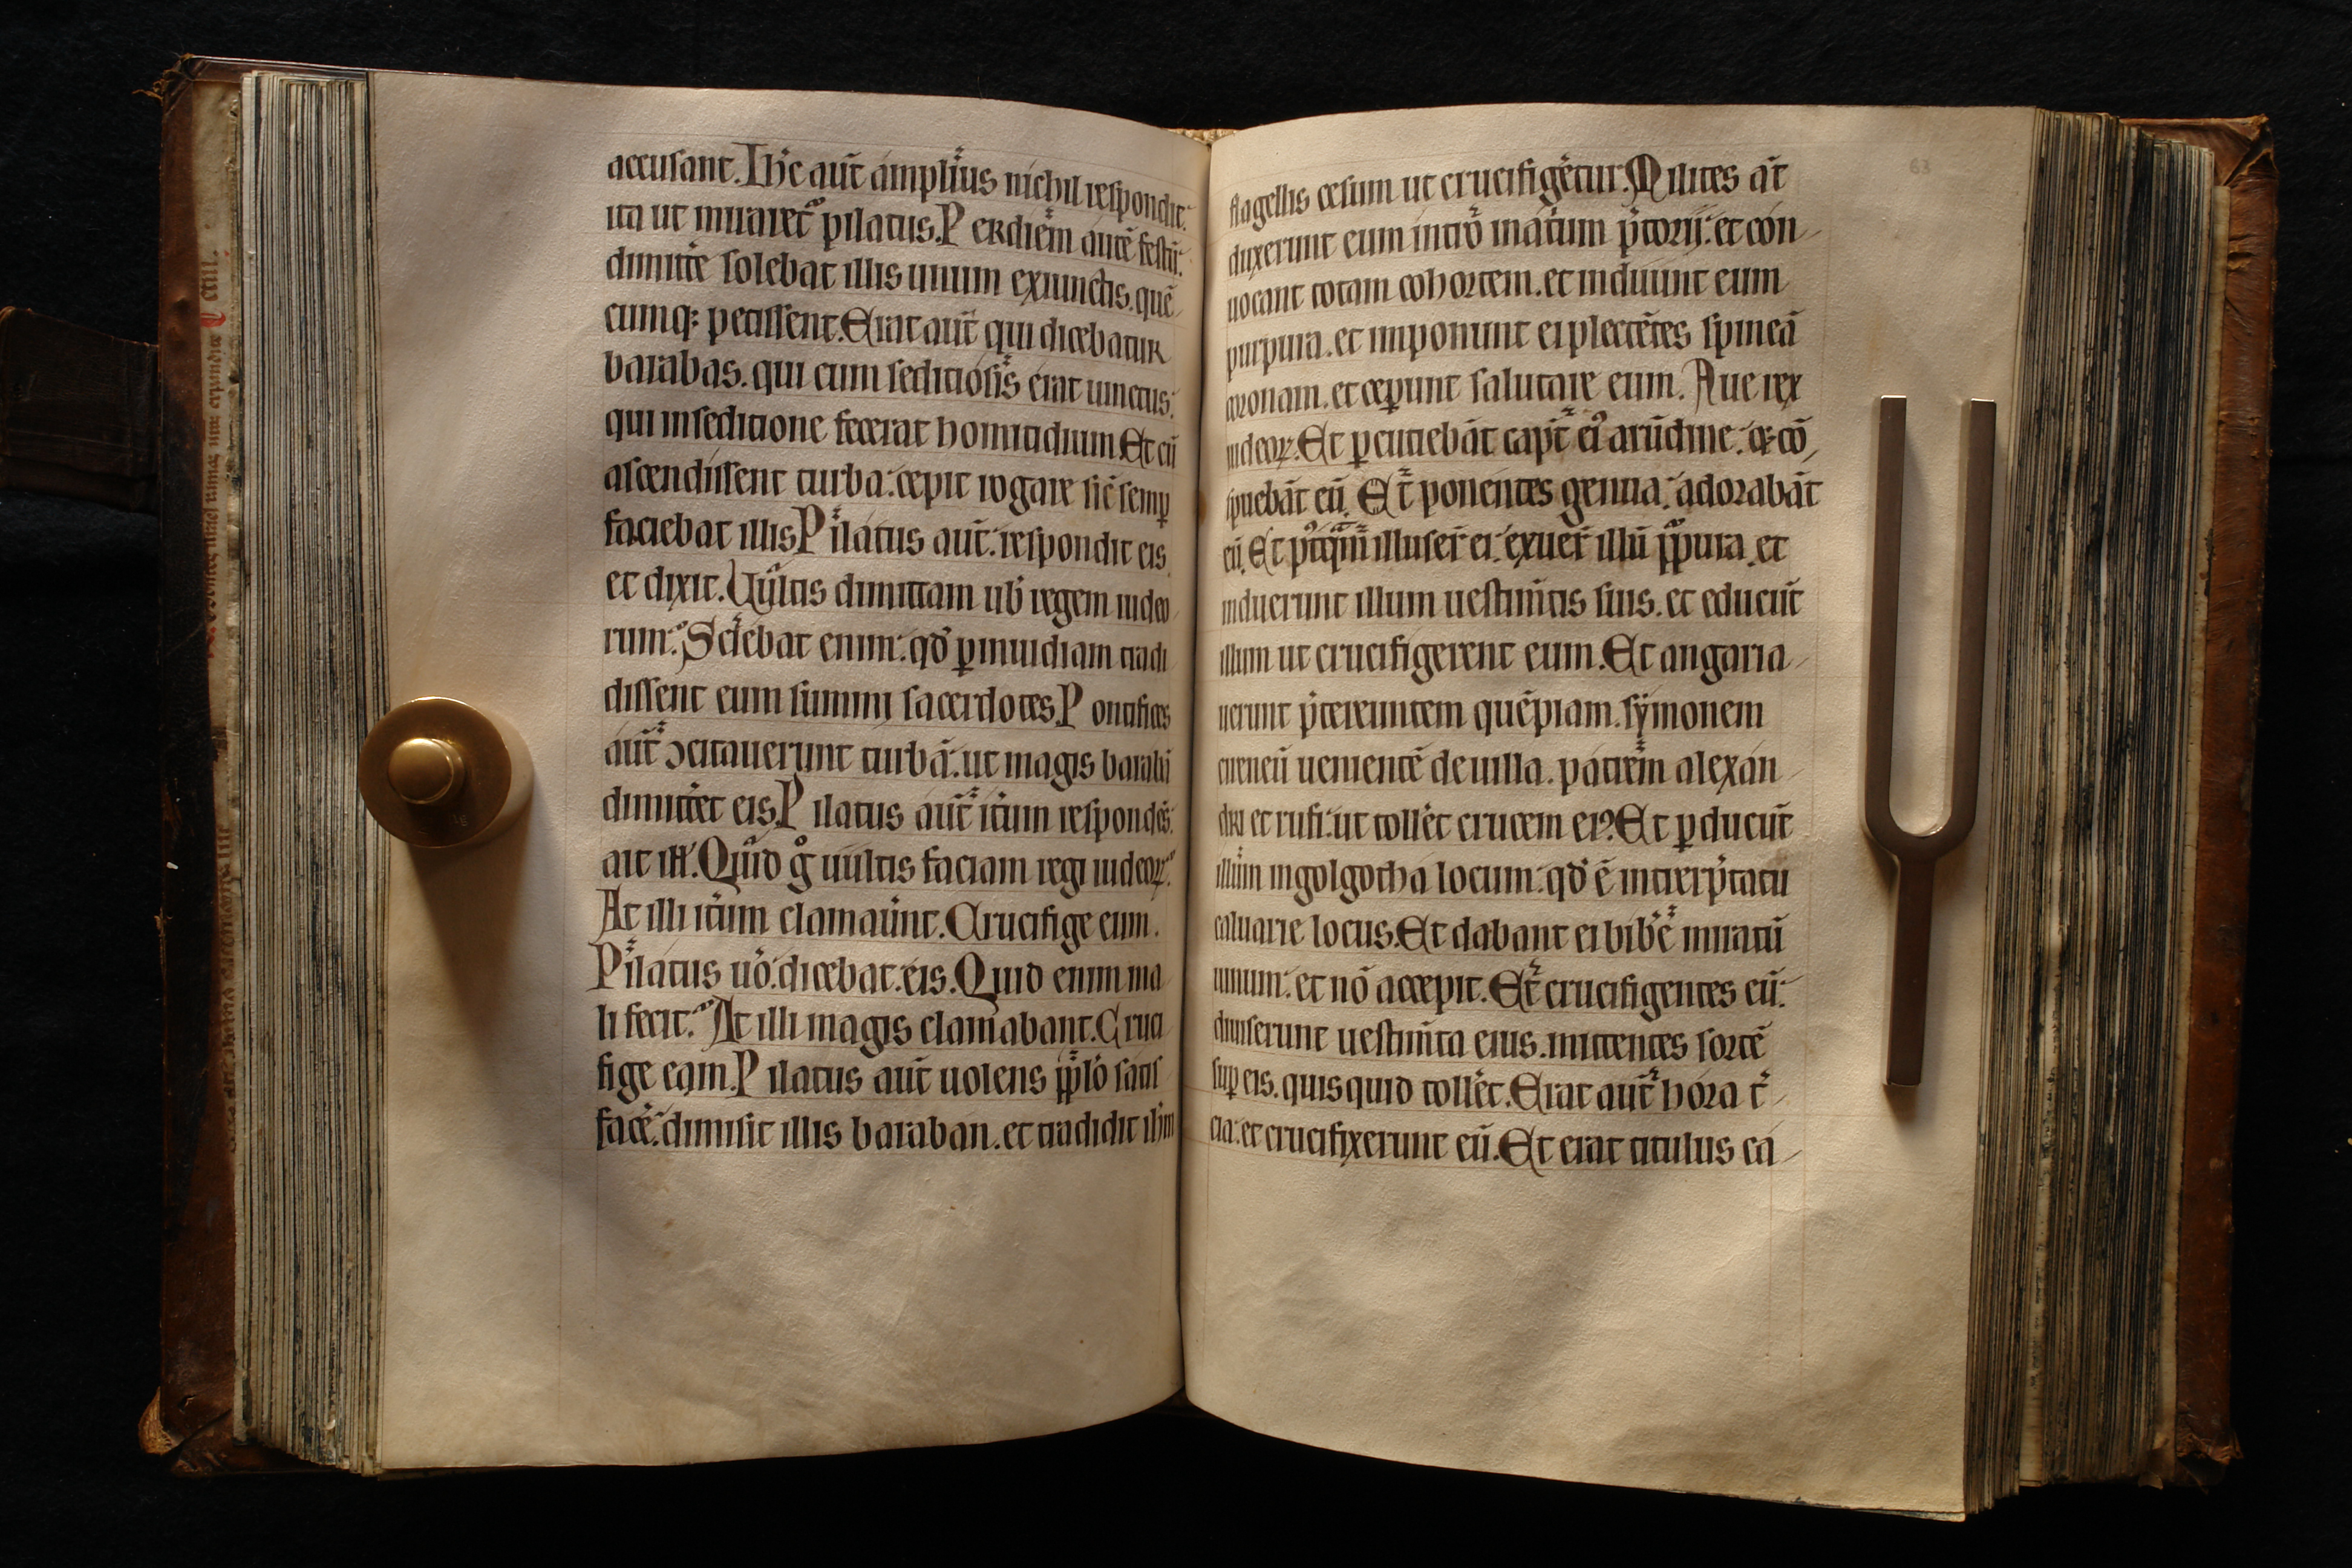 accusant. Ihc̄ aut̄ amplius nichil respondit:
ita ut miraret᷑ pilatus. Per diem autē festū:
dimitte᷑ solebat illis unum ex iunctis. quē
cumq; petissent. Erat aut̄ qui dicebatur
barabas. qui cum seditiosis erat uinctus:
qui in seditione fecerat homicidium. Et cū
ascendissent turba: cepit rogare sic̄ semꝑ
faciebat illis. Pilatus aut̄: respondit eis
et dixit. Uultis dimittam uob̄ regem iudeo
rum: Sciebat enim: qđ ꝑ inuidiam tradi
dissent eum summi sacerdotes. Pontifices
aut̄ ɔcitauerunt turbā: ut magis barabā
dimittēt eis. Pilatus aut̄ itūm respondēs:
ait ill̄. Quid gͦ uultis faciam regi iudeoꝝ:
At illi itūm clamaūnt. Crucifige eum.
Pilatus uō: dicebat. eis. Quid enim ma
li fecit: At illi magis clamabant. Cruci
fige eam. Pilatus aut̄ uolens pp̄lo satis
facē: dimisit illis baraban. et tradidit ih̄m
flagellis cesum ut crucifigētur. Milites at̄
duxerunt eum intro in atīum p̄torii: et con
uocant totam cohortem. et induunt eum
purpura. et imponunt ei plectētes spineā
coronam. et ceꝑunt salutare eum. Aue rex
iudeoꝝ. Et ꝑcutiebāt capt̄ eiꝰ arūdine: &; cō
spuebāt eū. Et̄ ponentes genua: adorabāt
eū. Et pꝰtqm̄ illuser̄ ei: exuer̄ illū pp̄ura. et
induerunt illum uestim̄tis suis. et educūt
illum ut crucifigerent eum. Et angaria
uerunt p̄tereuntem quēpiam. symonem
cireneū uenientē de uilla. patrem alexan
dri et rufi: ut tollēt crucem eiꝰ. Et ꝑducūt
illum in golgotha locum: qđ ē interp̄tatū
caluarie locus. Et dabant ei bibē᷑ miratū
uinum: et nō accepit. Et̄ crucifigentes eū:
diuiserunt uestim̄ta eius. mittentes sortē
suꝑ eis. quis quid tollēt. Erat aut̄ hora t̄
cia: et crucifixerunt eū. Et erat titulus ca
63